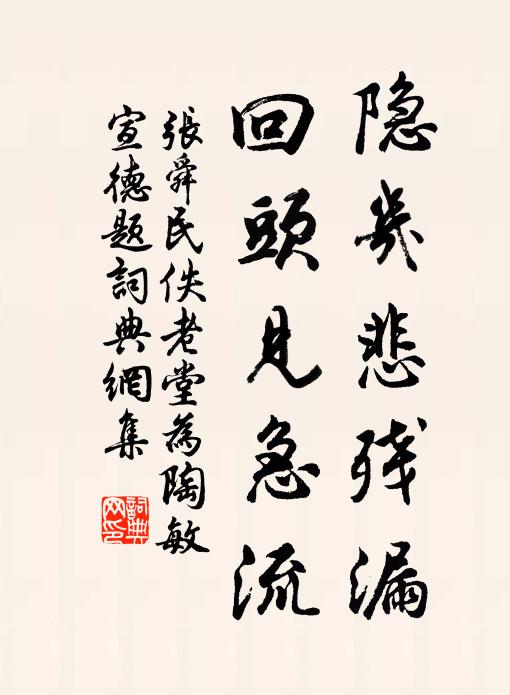 隐几悲残漏
回頭見急流
張舜民佚老堂為陶敏
宣德題詞典網集
詞典網印